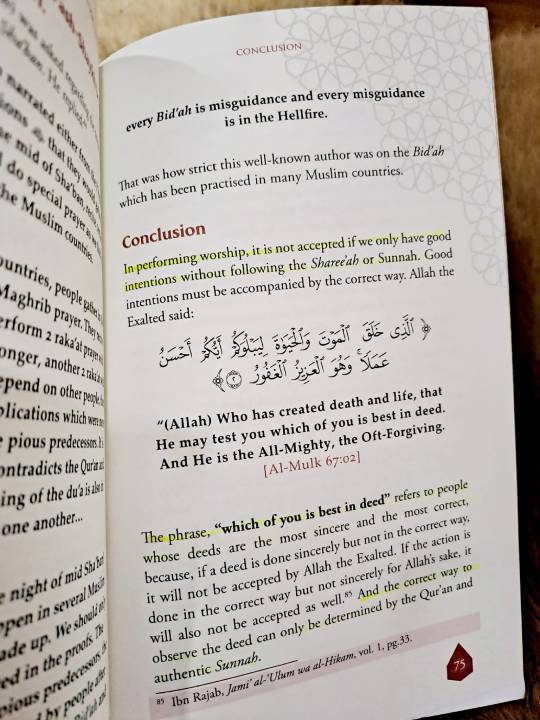 was asked
Sha'ban. He replied
narrated either from
that they would
mid of Sha'ban
do special prayer as we
the Muslim countries.
people gather
Maghrib prayer. They
2 raka'at prayer
another 2 raka'at
on other people,
which were
pious predecessors. It
the Qur'an and
of the du'a is also
one another...
night of mid Sha'ban
in several Muslim
up. We should
in the proofs. The
pious predecessors,
by people after
CONCLUSION
every Bid'ah is misguidance and every misguidance
is in the Hellfire.
That was how strict this well-known author was on the Bid'ah
which has been practised in many Muslim countries.
Conclusion
In performing worship, it is not accepted if we only have good
intentions without following the Sharee'ah or Sunnah. Good
intentions must be accompanied by the correct way. Allah the
Exalted said:
﴿ ٱلَّذِى خَلَقَ ٱلْمَوْتَ وَٱلْحَيَوٰةَ لِيَبْلُوَكُمْ أَيُّكُمْ أَحْسَنُ
عَمَلًا ۚ وَهُوَ ٱلْعَزِيزُ ٱلْغَفُورُ ٢ ﴾
“(Allah) Who has created death and life, that
He may test you which of you is best in deed.
And He is the All-Mighty, the Oft-Forgiving.
[Al-Mulk 67:02]
The phrase, “which of you is best in deed” refers to people
whose deeds are the most sincere and the most correct,
because, if a deed is done sincerely but not in the correct way,
it will not be accepted by Allah the Exalted. If the action is
done in the correct way but not sincerely for Allah's sake, it
will also not be accepted as well.85 And the correct way to
observe the deed can only be determined by the Qur'an and
authentic Sunnah.
85 Ibn Rajab, Jami' al-'Ulum wa al-Hikam, vol. 1, pg.33.
75